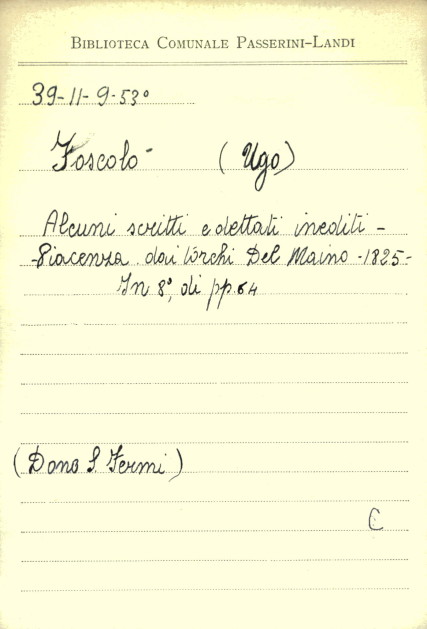 BIBLIOTECA COMUNALE PASSERINI-LANDI
39-11-9-53°
Foscolo (Ugo)
Alcuni scritti e dettati inediti -
-Piacenza dai torchi Del Maino -1825-
In 8°, di pp. 64
(Dono S. Fermi)
C